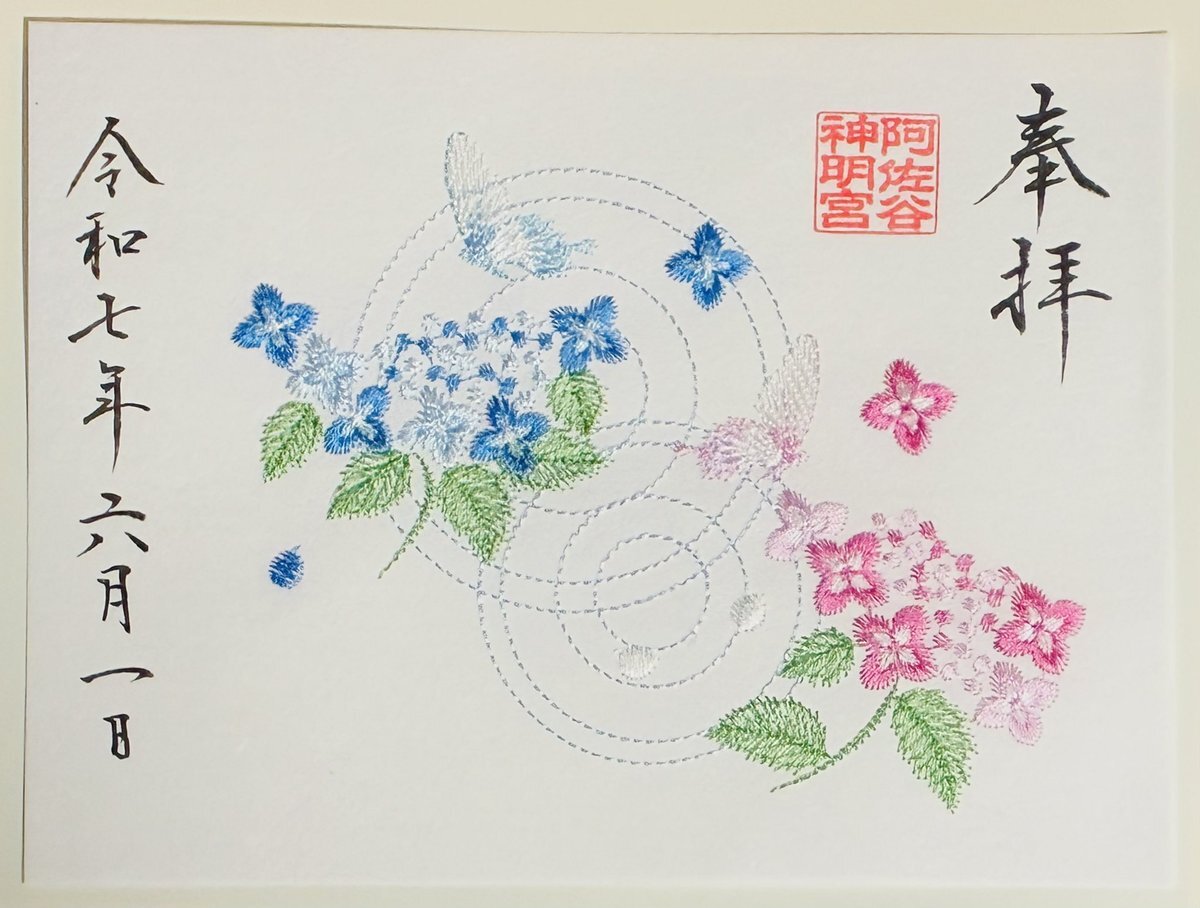 奉拝
阿佐谷
神明宮
令和七年六月一日